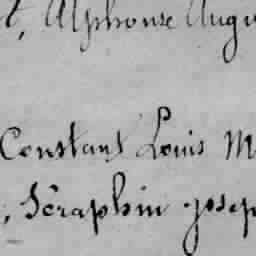 t, Alphonse Augu
Constant Louis M
, Séraphin Josep